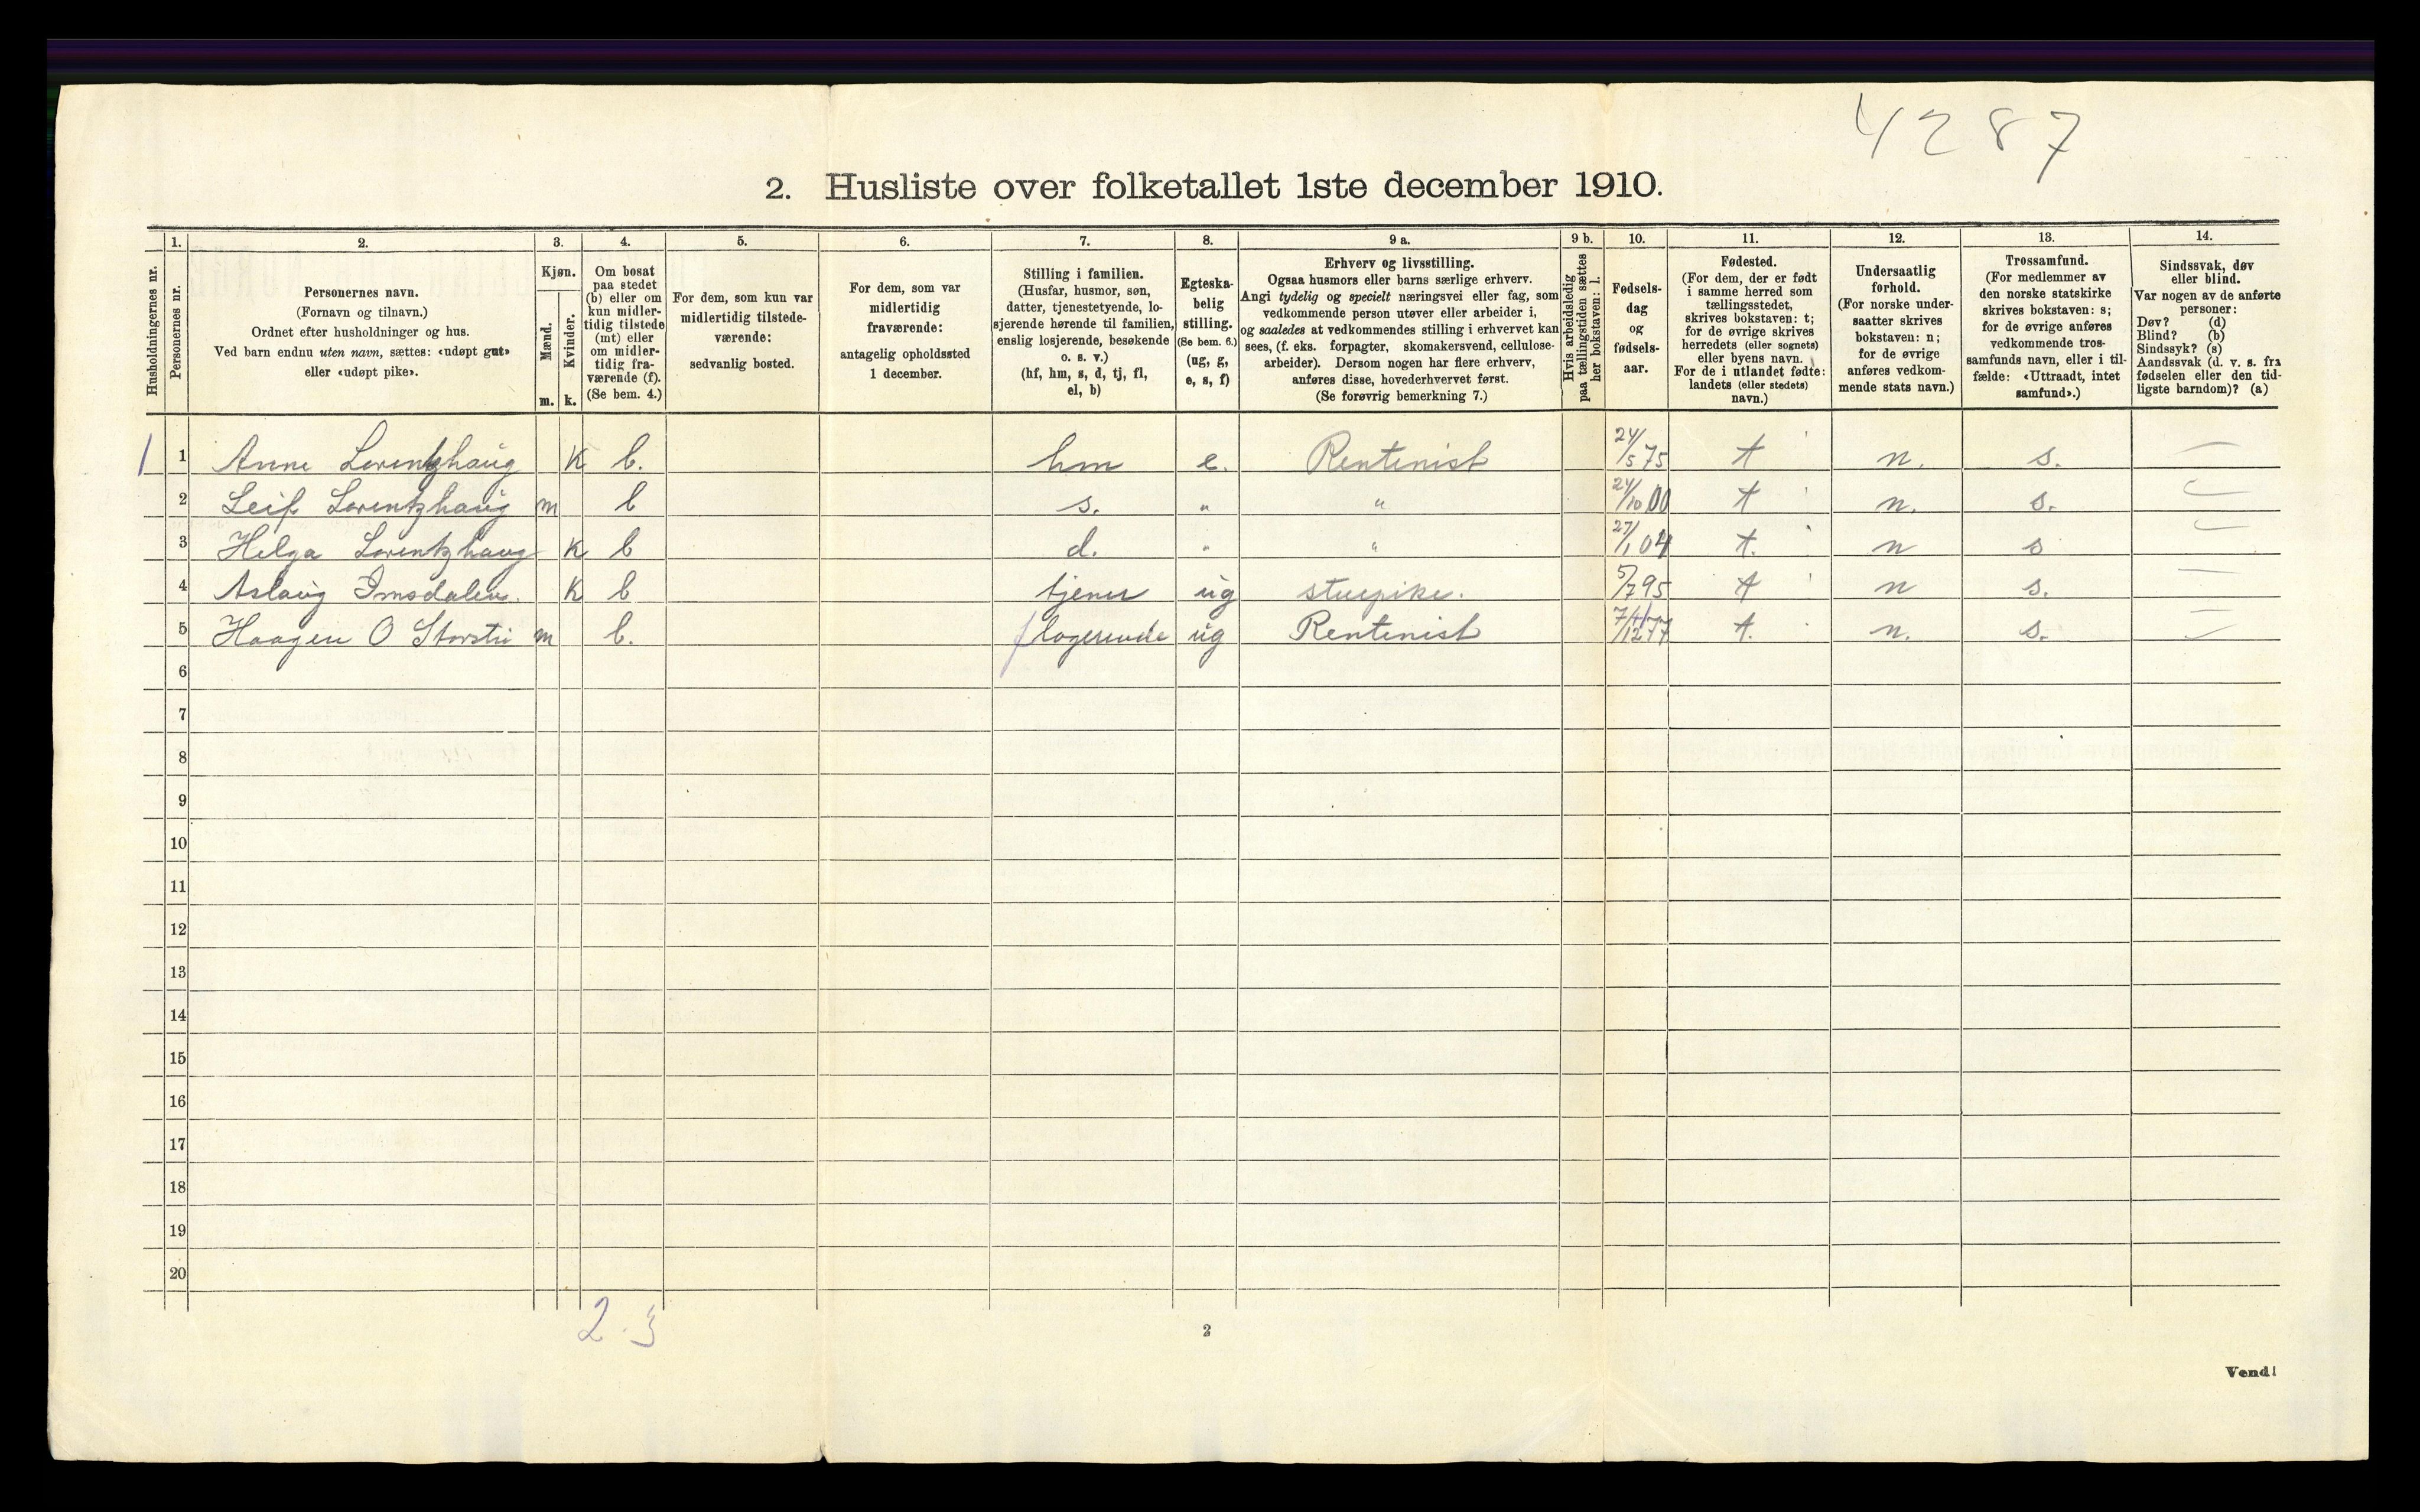 4287
2. Husliste over folketallet 1ste december 1910.
Husholdningernes nr.
1.
Personernes nr.
2.
Personernes navn.
(Fornavn og tilnavn.)
Ordnet efter husholdninger og hus.
Ved barn endnu uten navn, sættes: «udøpt gut»
eller «udøpt pike».
3.
Kjøn.
Mænd.
m.
Kvinder.
k.
4.
Om bosat
paa stedet
(b) eller om
kun midler-
tidig tilstede
(mt) eller
om midler-
tidig fra-
værende (f).
(Se bem. 4.)
5.
For dem, som kun var
midlertidig tilstede-
værende:
sedvanlig bosted.
6.
For dem, som var
midlertidig
fraværende:
antagelig opholdssted
1 december.
7.
Stilling i familien.
(Husfar, husmor, søn,
datter, tjenestetyende, lo-
sjerende hørende til familien,
enslig losjerende, besøkende
o. s. v.)
(hf, hm, s, d, tj, fl,
el, b)
8.
Egteska-
belig
stilling.
(Se bem. 6.)
(ug, g,
e, s, f)
9 a.
Erhverv og livsstilling.
Ogsaa husmors eller barns særlige erhverv.
Angi tydelig og specielt næringsvei eller fag, som
vedkommende person utøver eller arbeider i,
og saaledes at vedkommendes stilling i erhvervet kan
sees, (f. eks. forpagter, skomakersvend, cellulose-
arbeider). Dersom nogen har flere erhverv,
anføres disse, hovederhvervet først.
(Se forøvrig bemerkning 7.)
9 b.
Hvis arbeidsledig
paa tællingstiden sættes
her bokstaven: l.
10.
Fødsels-
dag
og
fødsels-
aar.
11.
Fødested.
(For dem, der er født
i samme herred som
tællingsstedet,
skrives bokstaven: t;
for de øvrige skrives
herredets (eller sognets)
eller byens navn.
For de i utlandet fødte:
landets (eller stedets)
navn.)
12.
Undersaatlig
forhold.
(For norske under-
saatter skrives
bokstaven: n;
for de øvrige
anføres vedkom-
mende stats navn.)
13.
Trossamfund.
(For medlemmer av
den norske statskirke
skrives bokstaven: s;
for de øvrige anføres
vedkommende tros-
samfunds navn, eller i til-
fælde: «Uttraadt, intet
samfund».)
14.
Sindssvak, døv
eller blind.
Var nogen av de anførte
personer:
Døv? (d)
Blind? (b)
Sindssyk? (s)
Aandssvak (d. v. s. fra
fødselen eller den tid-
ligste barndom)? (a)
1 1 Anne Lorentzhaug K b. hm e. Rentenist 24/5 75 t n. s. —
2 Leif Lorentzhaug m b s. " " 24/10 00 t n. s. —
3 Helga Lorentzhaug K b d. " " 27/1 04 t. n s —
4 Aslaug Imsdalen. K b tjener ug stuepike. 5/7 95 t n s. —
5 Haagen O Storstri m b. f logerende ug Rentenist 7/12 77 t. n. s. —
6
7
8
9
10
11
12
13
14
15
16
17
18
19
20
2 . 3
2
Vend!